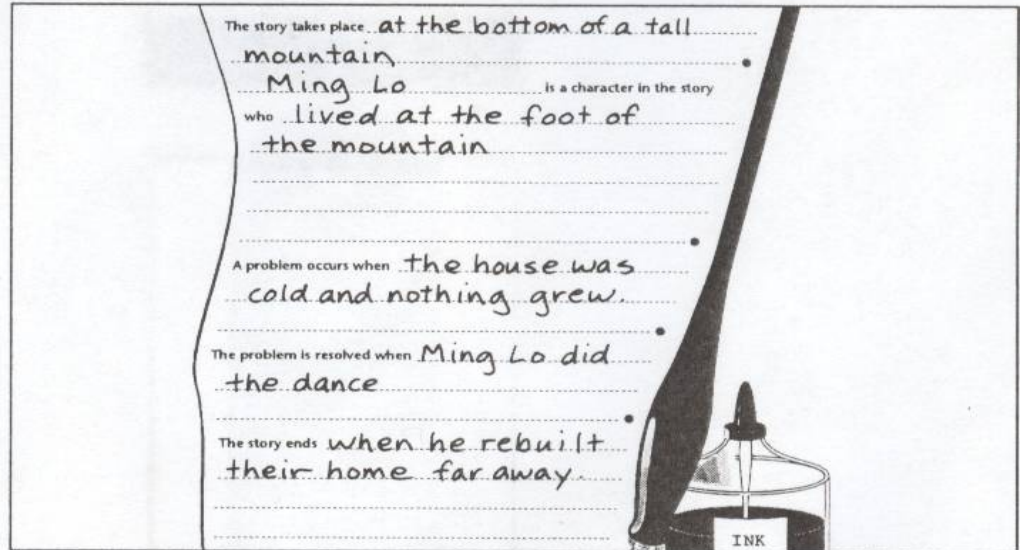 The story takes place at the bottom of a tall
mountain
Ming Lo is a character in the story
who lived at the foot of
the mountain
A problem occurs when the house was
cold and nothing grew.
The problem is resolved when Ming Lo did
the dance
The story ends when he rebuilt
their home far away.
INK